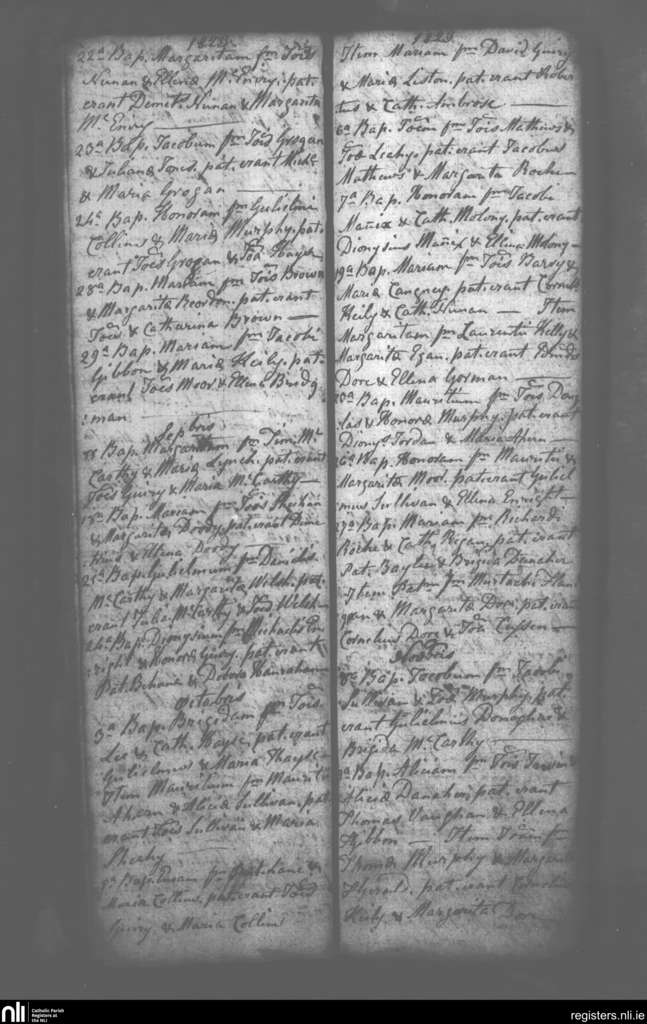 1828.
22ª Bap. Margaritam fm Tois
Nunan & Ellena McEniry. pat.
erant Demet. Nunan & Margarita
McEniry
23ª Bap. Jacobum fm Tois Grogan
& Juliana Jones. pat. erant Mich.
& Maria Grogan
24ª Bap. Honoram fm Gulielmi
Collins & Maria Murphy. pat.
erant Toes Grogan & Toa Hayes
28ª Bap. Mariam fm Tois Brown
& Margarita Reordon. pat. erant
Toes & Catharina Brown
29ª Bap. Mariam fm Jacobi
Gibbon & Maria Heily. pat.
erant Toes Moor & Ellena Bridg
man
Septris
Bap. Margaritam fm Tim. Mc
Carthy & Maria Lynch. pat. erant
Tois Guiry & Maria McCarthy
Bap. Mariam fm Tois Sheehan
& Margarita Doody. pat. erant
& Ellena Doody
Bap. Gulielmum fm Danielis
McCarthy & Margarita Welsh. pat.
erant McCarthy & Welsh
24ª Bap. Dionysium fm Michaelis En
right & Honora Guiry. pat. erant
Pat. Behane & Debora Hanrahan
Octobris
5ª Bap. Brigidam fm Tois
Lee & Cath. Hayse. pat. erant
Gulielmus & Maria Thayse
Item Mauritium fm Mauritii
Ahern & Alicia Sullivan. pat
erant Tois Sullivan & Maria
Sheehy
Bap. &
Maria Collins. pat. erant
Guiry & Maria Collins
1828.
Item Mariam fm David Guiry
& Maria Liston. pat. erant Rober
tus & Cath. Ambrose
6ª Bap. Toem fm Tois Mathews &
Toa Leahy. pat. erant Jacobus
Mathews & Margarita Roche
7ª Bap. Honoram fm Jacobi
Mañix & Cath. Molony. pat. erant
Dionysius Mañix & Ellena Molony
19ª Bap. Mariam fm Tois Barry &
Maria Cangney. pat. erant Cornel.
Heily & Cath. Nunan — Item
Margaritam fm Laurentii Kelly &
Margarita Egan. pat. erant
Dore & Ellena Gorman
20ª Bap. Mauritium fm Tois Doug
las & Honora Murphy. pat. erant
Dionys. Jordan & Maria Ahern
26ª Bap. Honoram fm Mauritii &
Margarita Moor. pat. erant Guliel
mus Sullivan & Ellena Enright
27ª Bap. Mariam fm Richardi
Roche & Cath. Regan. pat. erant
Pat. Baylee & Brigida Danaher
Item Patm fm Murtachi Flan
agan & Margarita Dore. pat. erant
Cornelius Dore & Toa Cussen
Novbris
8ª Bap. Jacobum fm Jacobi
Sullivan & Toa Murphy. pat.
erant Gulielmus Donoghue &
Brigida McCarthy
9ª Bap. Aliciam fm Tois &
Alicia Danaher. pat. erant
Thomas Vaughan & Ellena
Gibbon — Item Toem fm
Thoma Murphy & Margarita
pat. erant Cornelius
Heily & Margarita
nli Catholic Parish
Registers at
the NLI
registers.nli.ie